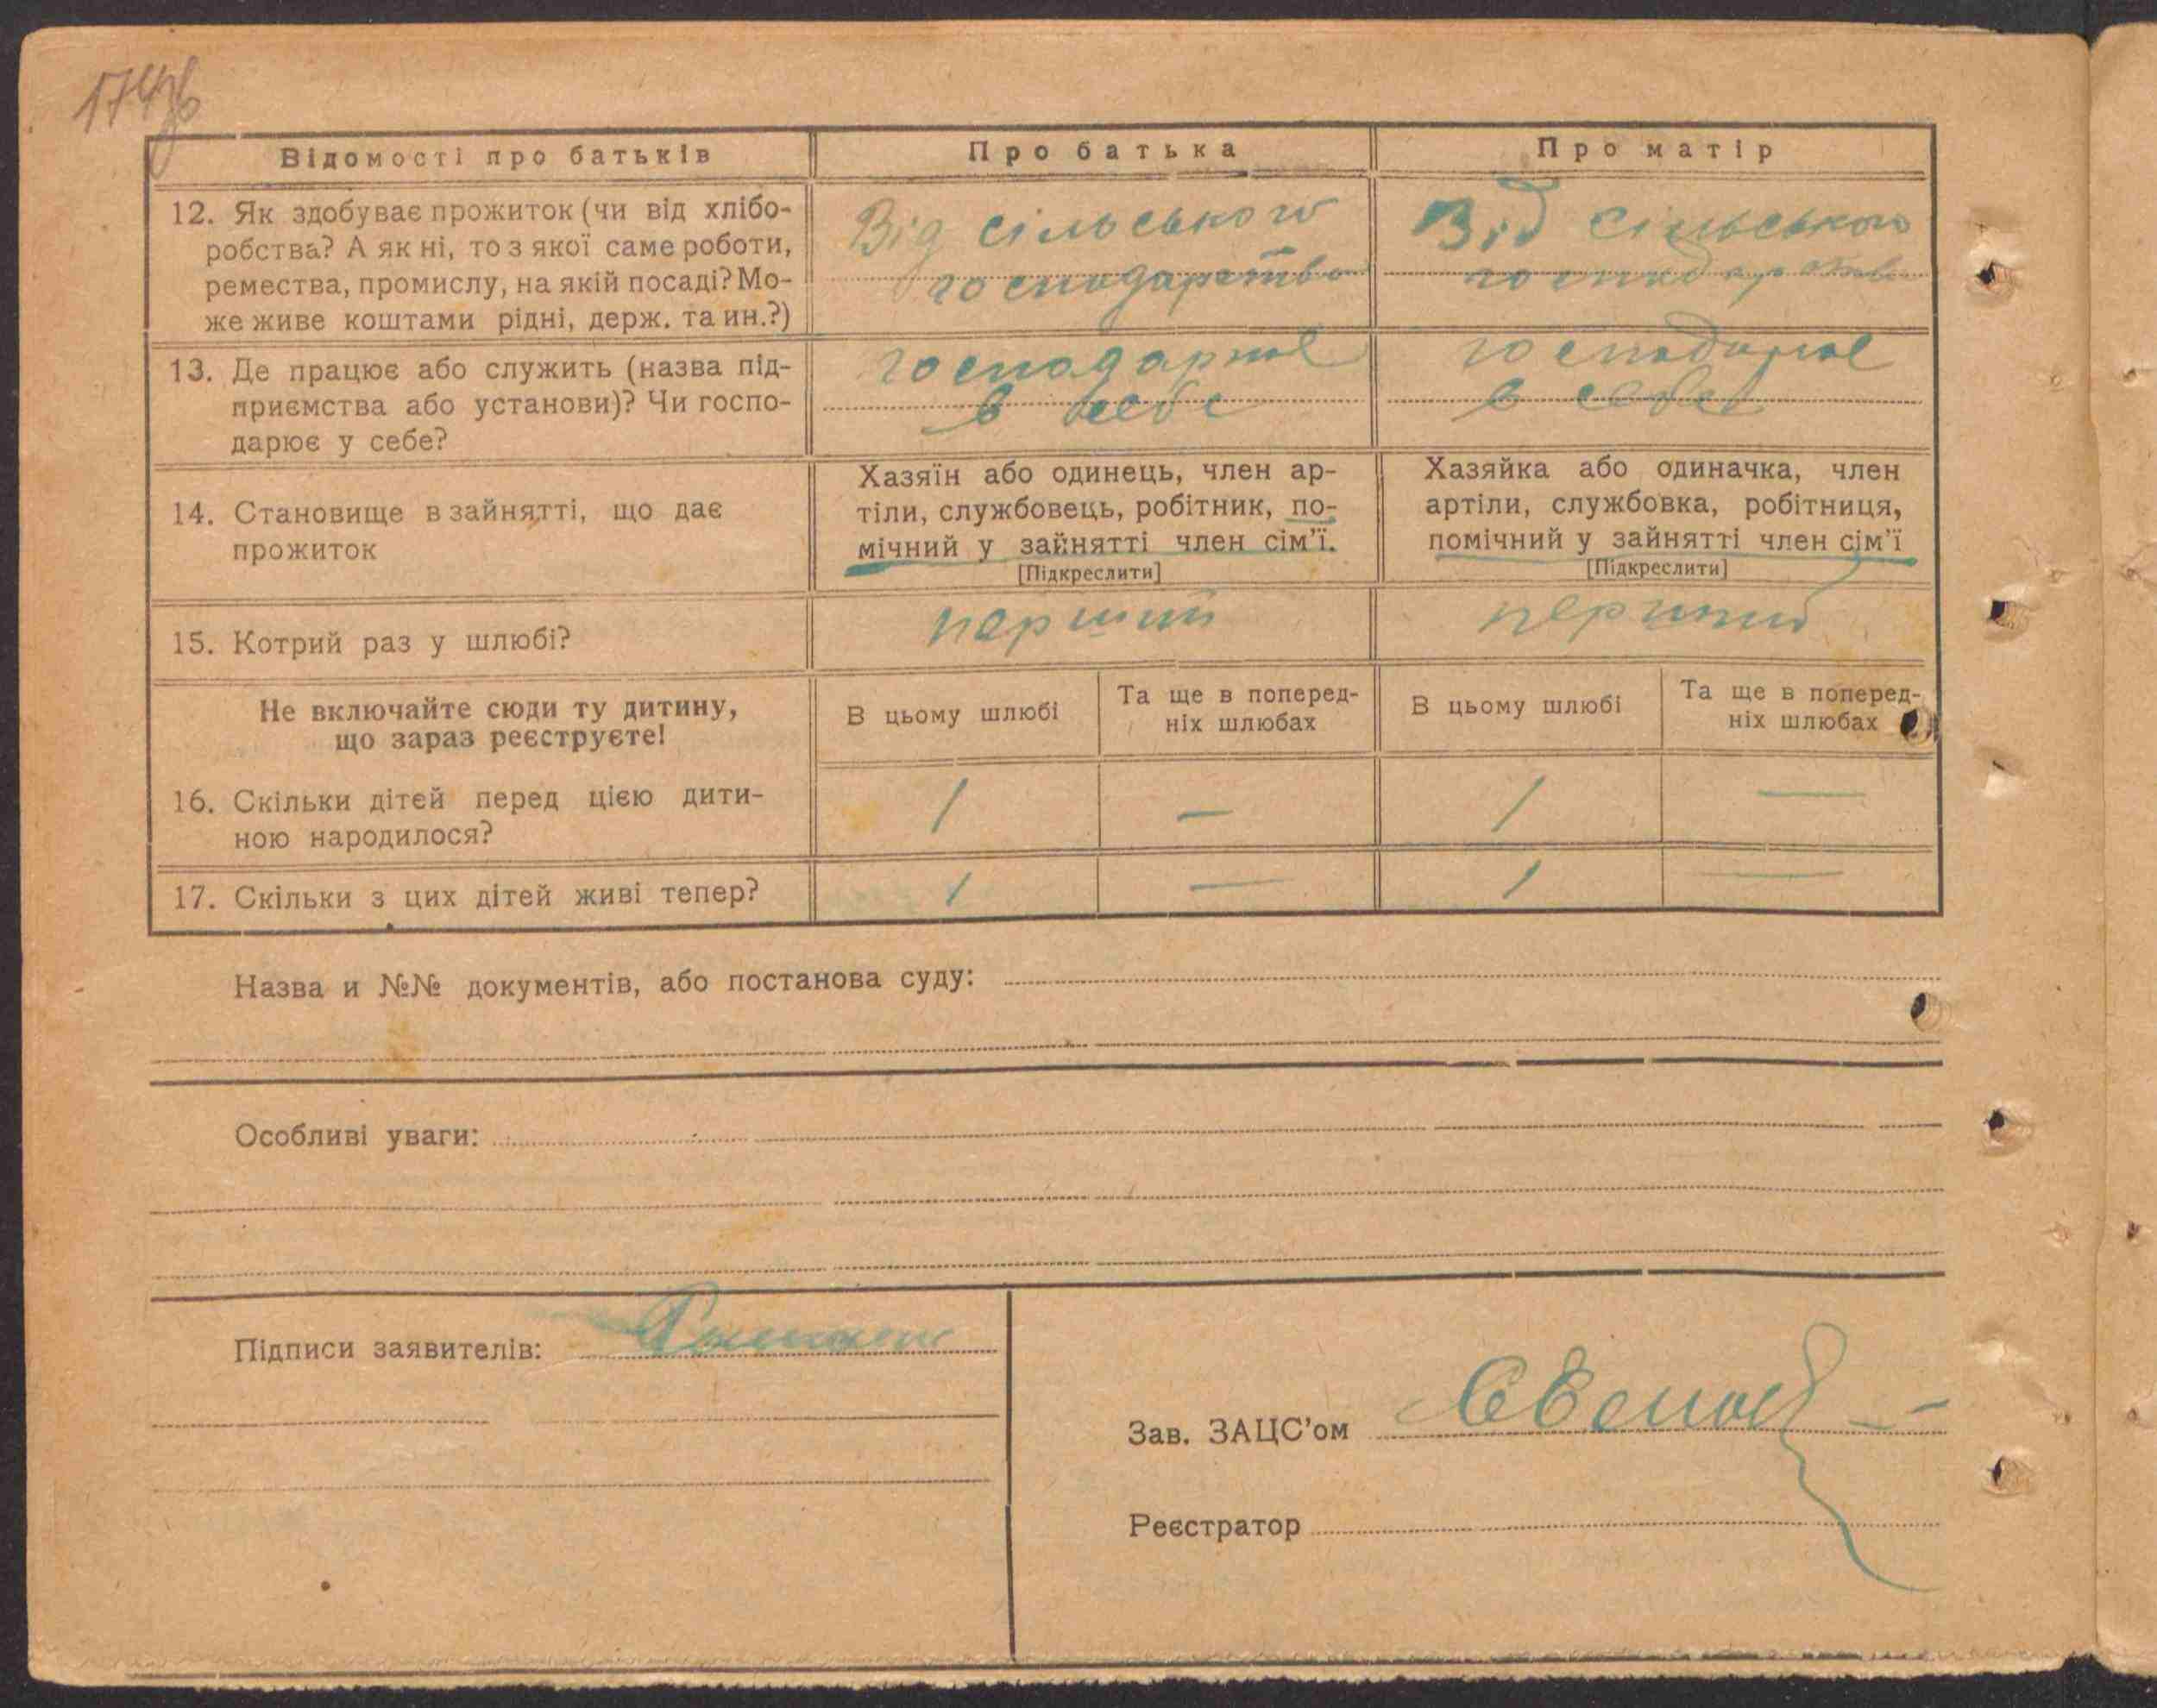 174зв
Відомості про батьків
Про батька
Про матір
12. Як здобуває прожиток (чи від хлібо-
робства? А як ні, то з якої саме роботи,
ремества, промислу, на якій посаді? Мо-
же живе коштами рідні, держ. та ин.?)
Від сільського
господарства
Від сільського
господарства
13. Де працює або служить (назва під-
приємства або установи)? Чи госпо-
дарює у себе?
господарює
в себе
господарює
в себе
14. Становище в зайнятті, що дає
прожиток
Хазяїн або одинець, член ар-
тіли, службовець, робітник, по-
мічний у зайнятті член сім'ї.
[Підкреслити]
Хазяйка або одиначка, член
артіли, службовка, робітниця,
помічний у зайнятті член сім'ї
[Підкреслити]
15. Котрий раз у шлюбі?
перший
перший
Не включайте сюди ту дитину,
що зараз реєструєте!
В цьому шлюбі
Та ще в поперед-
ніх шлюбах
В цьому шлюбі
Та ще в поперед-
ніх шлюбах
16. Скільки дітей перед цією дити-
ною народилося?
1 — 1 —
17. Скільки з цих дітей живі тепер?
1 — 1 —
Назва и №№ документів, або постанова суду:
Особливі уваги:
Підписи заявителів:
Зав. ЗАЦС'ом
Реєстратор